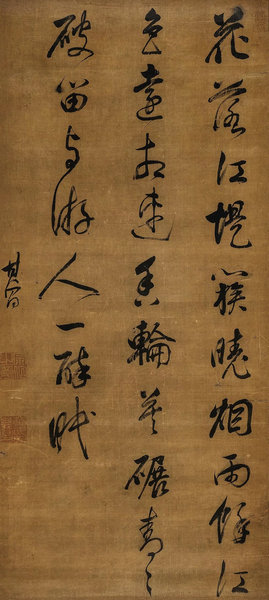 花落江堤簇曉烟雨餘江
色遠相連香輪莫碾青〻
破留与游人一醉眠
其昌